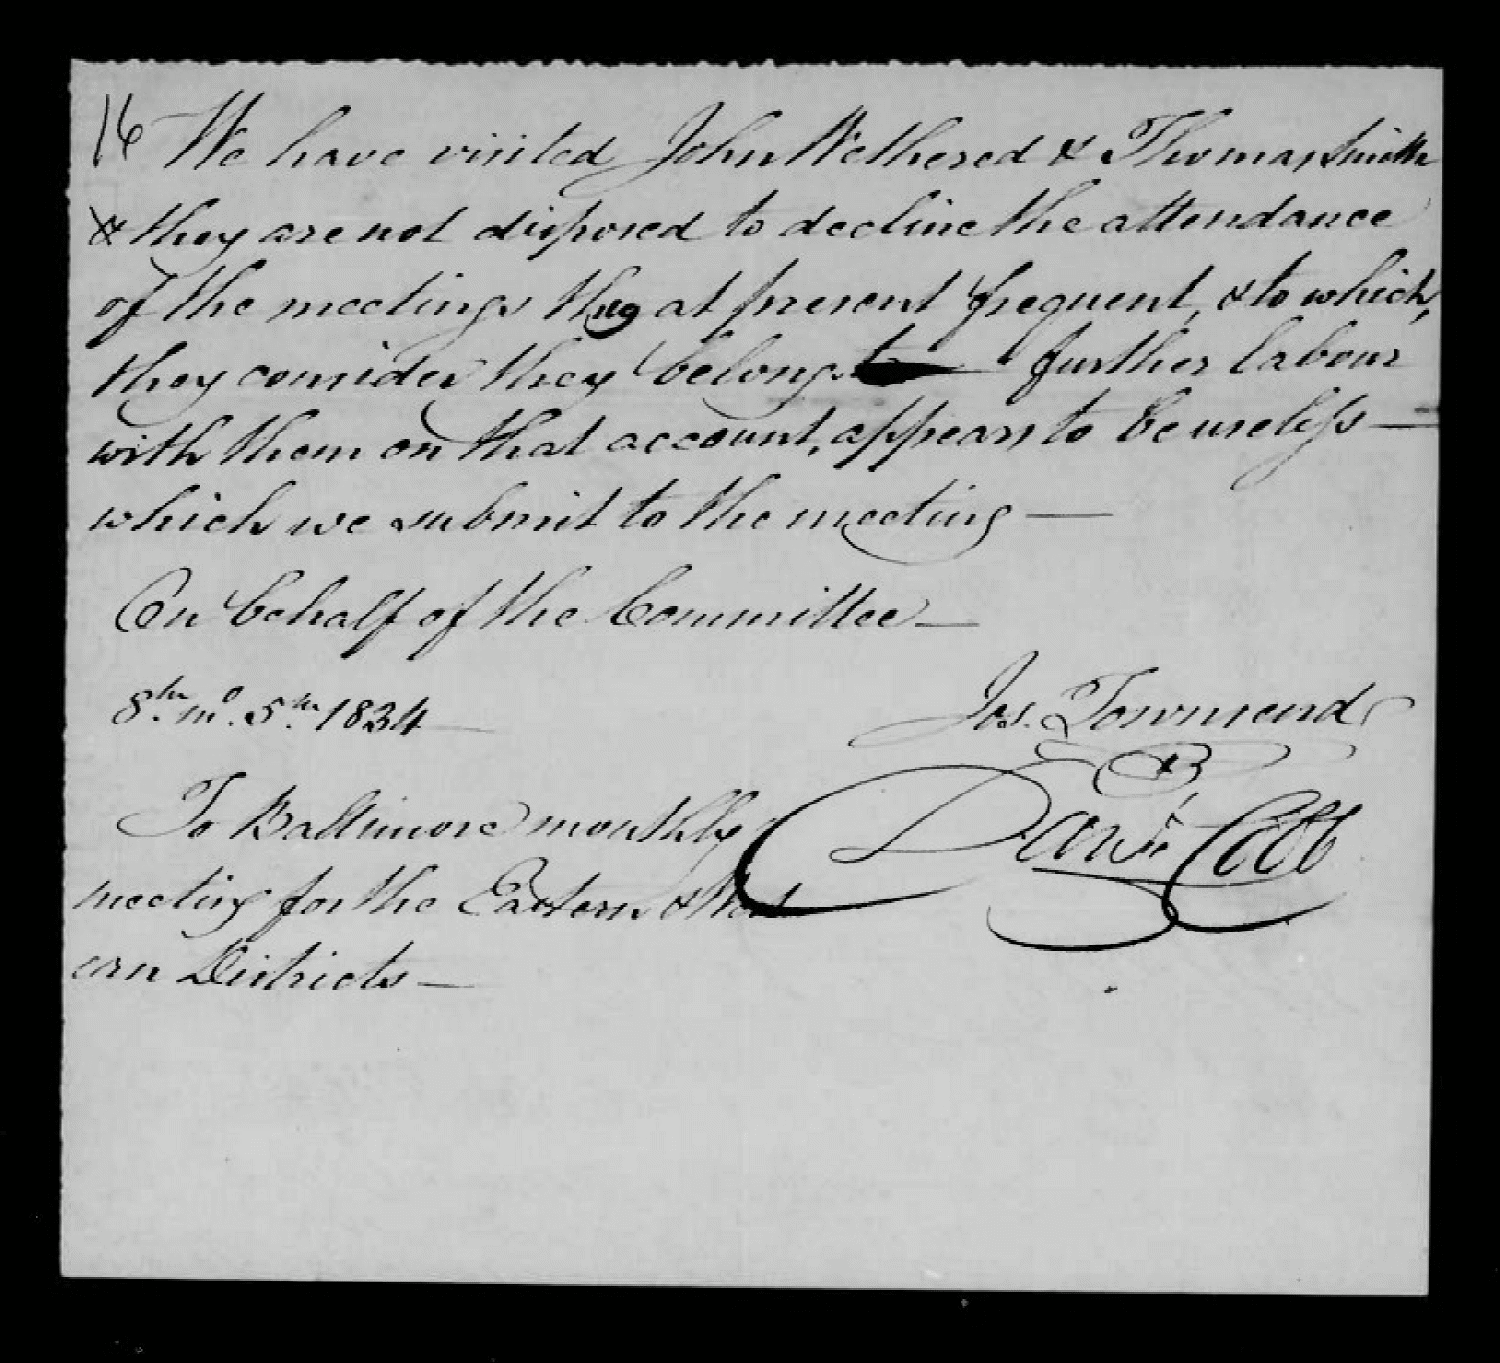 16 We have visited John Wethered & Thomas Smith
& they are not disposed to decline the attendance
of the meetings they at present frequent, & to which,
they consider they belong. further labour
with them on that account, appears to be useless —
which we submit to the meeting —
On behalf of the Committee —
8th. mo. 5th. 1834
Jos. Townsend
To Baltimore monthly
Danl Cobb
meeting for the Eastern & West
ern Districts —